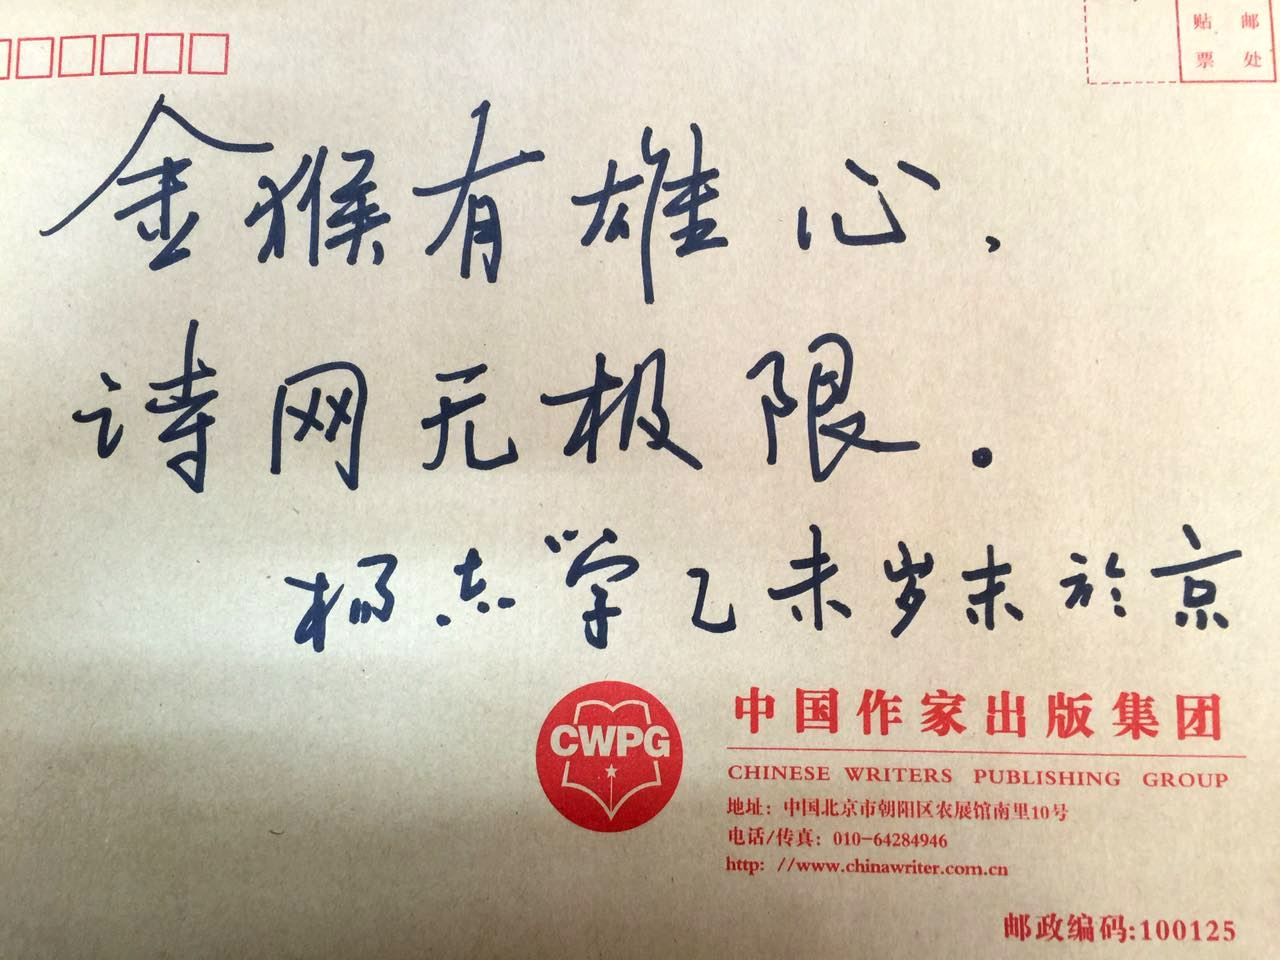 贴 邮
票 处
金猴有雄心,
诗网无极限.
杨志学乙未岁末於京
CWPG
中国作家出版集团
CHINESE WRITERS PUBLISHING GROUP
地址: 中国北京市朝阳区农展馆南里10号
电话/传真: 010-64284946
http: //www.chinawriter.com.cn
邮政编码:100125